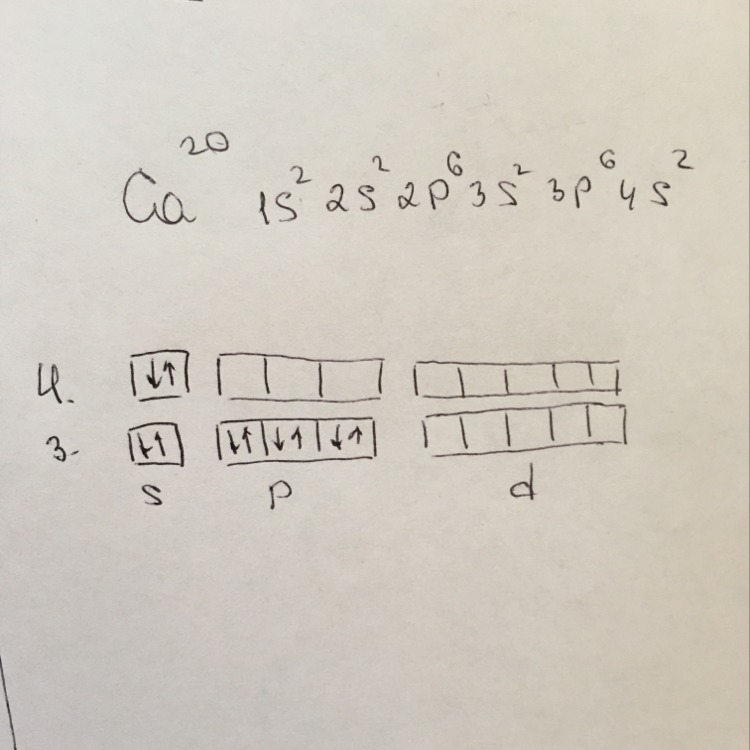 Ca²⁰ 1s² 2s² 2p⁶ 3s² 3p⁶ 4s²
4. ↓↑
3. ↓↑ ↓↑ ↓↑ ↓↑
s p d